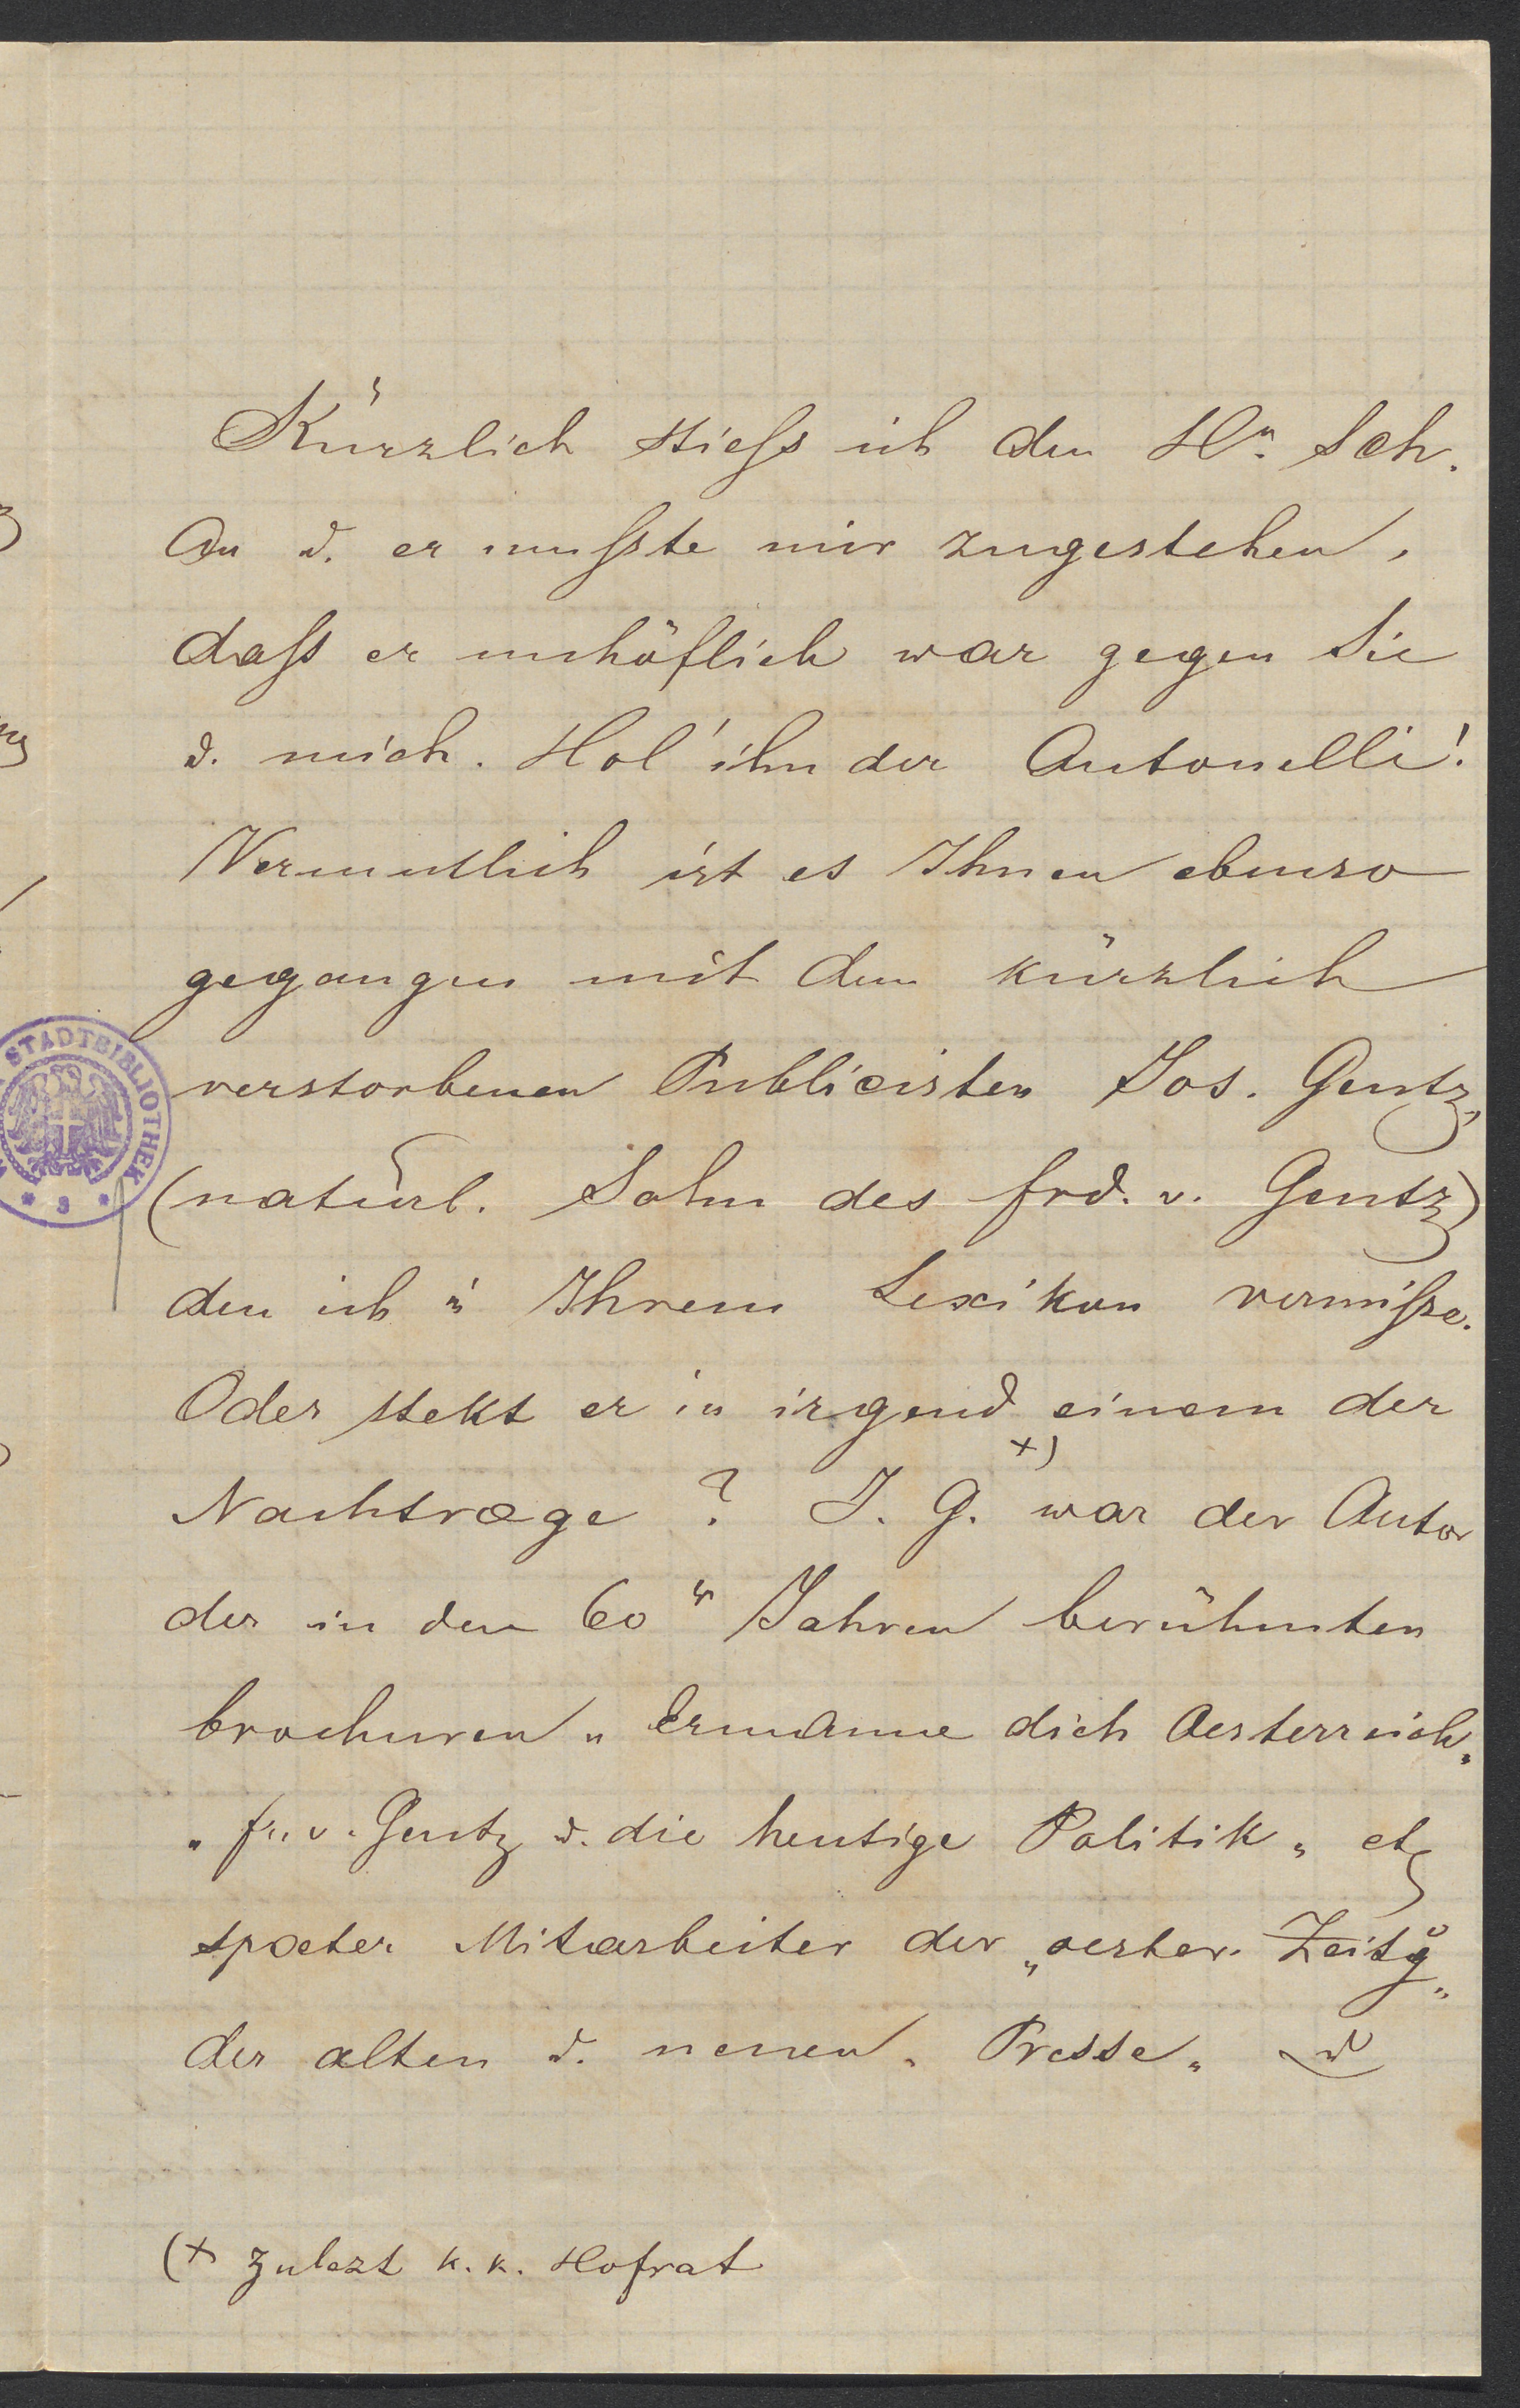 Kürzlich stieſs ich den Hn. Sch.
an u. er muſste mir zugestehen,
daſs er unhöflich war gegen Sie
u. mich. Hol' ihn der Antonelli!
Vermutlich ist es Ihnen ebenso
gegangen mit dem kürzlich
verstorbenen Publicisten Jos. Gentz,
(natürl. Sohn des frd. v. Gentz)
den ich in Ihrem Lexikon vermiſse.
Oder stekt er in irgend einem der
Nachtræge? J. G. +) war der Autor
der in den 60er Jahren berühmten
brochuren „Ermanne dich Oesterreich„
„fr. v. Gentz u. die heutige Politik„ etc
spæter Mitarbeiter der „oester. Zeitg„
der alten u. neuen „Presse„
(+ zulezt k. k. Hofrat
STADTBIBLIOTHEK
* 9 *